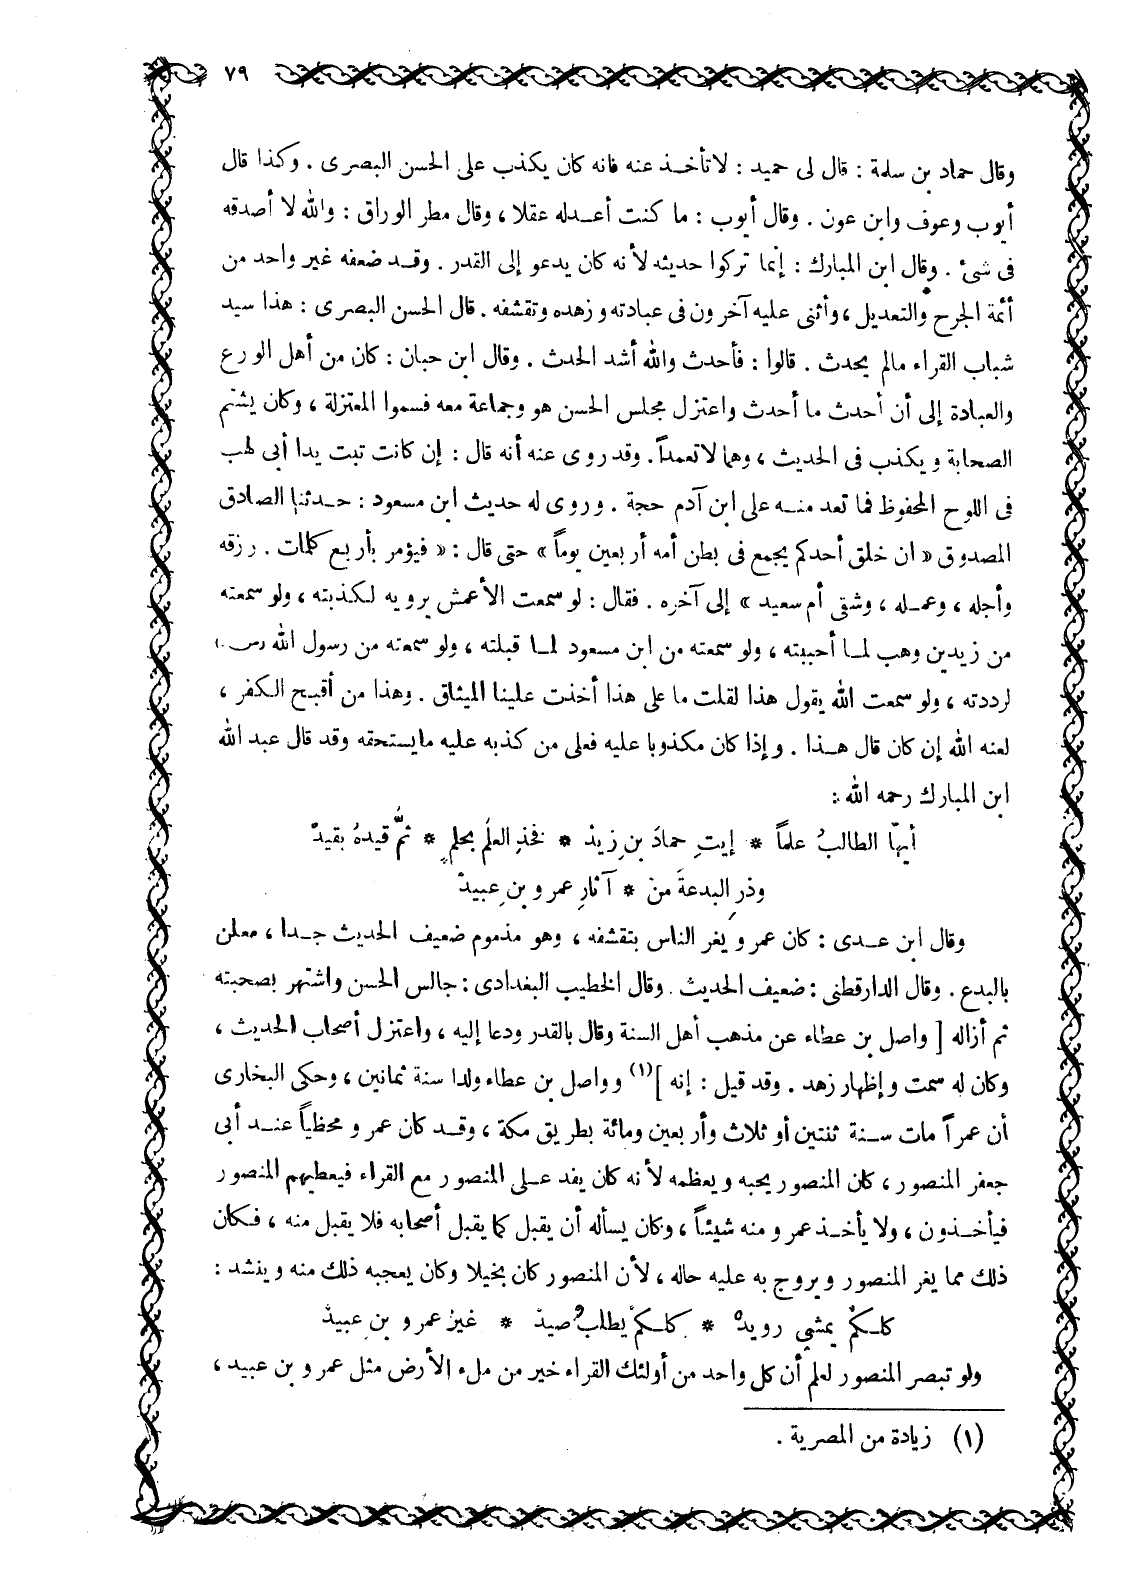 ٧٩
وقال حماد بن سلمة : قال لى حميد : لا تأخذ عنه فانه كان يكذب على الحسن البصرى . وكذا قال
أيوب وعوف وابن عون . وقال أيوب : ما كنت أعدله عقلا ، وقال مطر الوراق : والله لا أصدقه
فى شئ . وقال ابن المبارك : إنما تركوا حديثه لأنه كان يدعو إلى القدر . وقد ضعفه غير واحد من
أئمة الجرح والتعديل ، وأثنى عليه آخرون فى عبادته وزهده وتقشفه . قال الحسن البصرى : هذا سيد
شباب القراء مالم يحدث . قالوا : فأحدث والله أشد الحدث . وقال ابن حبان : كان من أهل الورع
والعبادة إلى أن أحدث ما أحدث واعتزل مجلس الحسن هو وجماعة معه فسموا المعتزلة ، وكان يشتم
الصحابة ويكذب فى الحديث ، وهما لا تعمداً . وقد روى عنه أنه قال : إن كانت تبت يدا أبى لهب
فى اللوح المحفوظ فما تعد منه على ابن آدم حجة . وروى له حديث ابن مسعود : حدثنا الصادق
المصدوق « ان خلق أحدكم يجمع فى بطن أمه أربعين يوماً » حتى قال : « فيؤمر بأربع كلمات . رزقه
وأجله ، وعمله ، وشقى أم سعيد » إلى آخره . فقال : لو سمعت الأعمش يرويه لكذبته ، ولو سمعته
من زيد بن وهب لما أحببته ، ولو سمعته من ابن مسعود لما قبلته ، ولو سمعته من رسول الله
لرددته ، ولو سمعت الله يقول هذا لقلت ما على هذا أخذت علينا الميثاق . وهذا من أقبح الكفر ،
لعنه الله إن كان قال هذا . وإذا كان مكذوبا عليه فعلى من كذبه عليه مايستحقه وقد قال عبد الله
ابن المبارك رحمه الله :
أيها الطالبُ علماً * إيتِ حمادَ بن زيد * فخذ العلَم بحلمٍ * ثُم قيدهُ بقيد
وذرِ البدعةَ من * آثارِ عمرو بن عبيد
وقال ابن عدى : كان عمرو يغر الناس بتقشفه ، وهو مذموم ضعيف الحديث جدا ، معلن
بالبدع . وقال الدارقطنى : ضعيف الحديث . وقال الخطيب البغدادى : جالس الحسن واشتهر بصحبته
ثم أزاله [ واصل بن عطاء عن مذهب أهل السنة وقال بالقدر ودعا إليه ، واعتزل أصحاب الحديث ،
وكان له سمت وإظهار زهد . وقد قيل : إنه ](١) وواصل بن عطاء ولدا سنة ثمانين ، وحكى البخارى
أن عمراً مات سنة ثنتين أو ثلاث وأربعين ومائة بطريق مكة ، وقد كان عمرو محظياً عند أبى
جعفر المنصور ، كان المنصور يحبه ويعظمه لأنه كان يفد على المنصور مع القراء فيعطيهم المنصور
فيأخذون ، ولا يأخذ عمرو منه شيئاً ، وكان يسأله أن يقبل كما يقبل أصحابه فلا يقبل منه ، فكان
ذلك مما يغر المنصور ويروج به عليه حاله ، لأن المنصور كان بخيلا وكان يعجبه ذلك منه وينشد :
كلكم يمشي رويد * كلكم يطلب صيد * غير عمرو بن عبيد
ولو تبصر المنصور لعلم أن كل واحد من أولئك القراء خير من ملء الأرض مثل عمرو بن عبيد ،
(١) زيادة من المصرية .